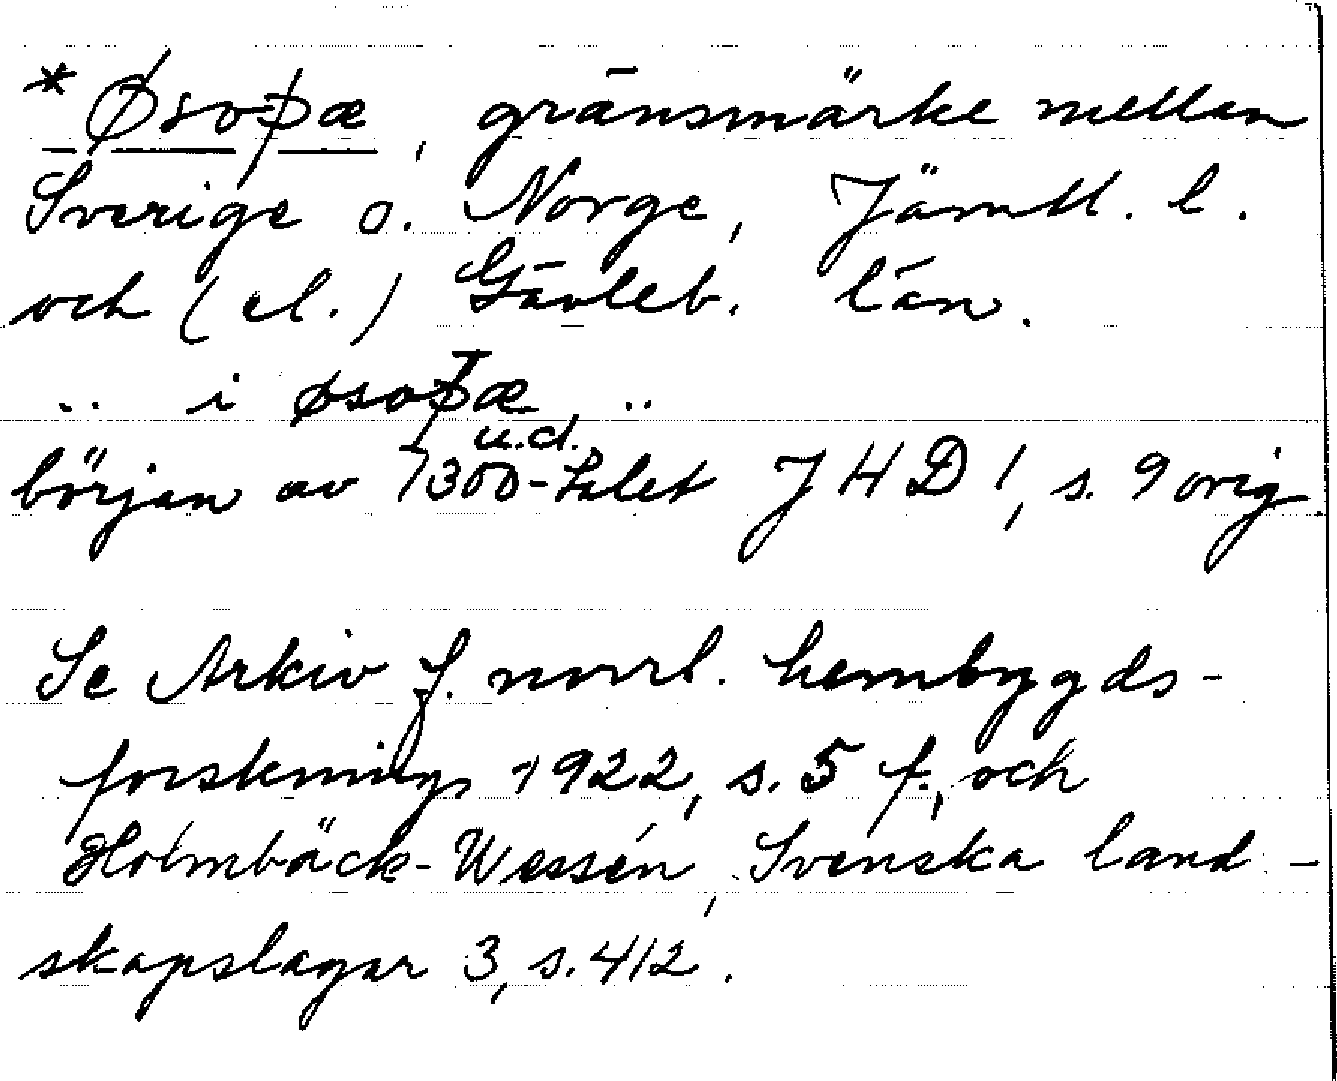 *Øsoþæ, gränsmärke mellan
Sverige o. Norge, Jämtl. l.
och (el.) Gävleb. län.
.. i øsoþæ, ..
u.d.
början av 1300-talet JHD 1, s. 9 orig
Se Arkiv f. norrl. hembygds-
forskning 1922, s. 5 f., och
Holmbäck-Wessén, Svenska land-
skapslagar 3, s. 412.